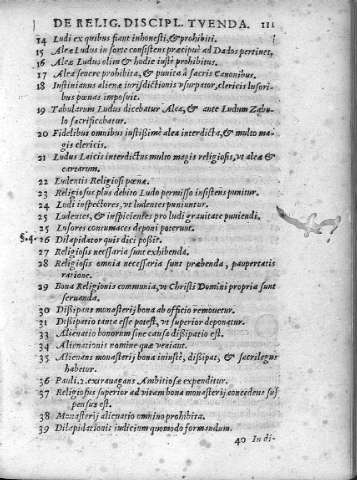 DE RELIG. DISCIPL. TVENDA. 111
14 Ludi ex quibus fiant inhonesti, & prohibiti.
15 Aleæ Ludus in sorte consistens præcipuè ad Dados pertinet.
16 Aleæ Ludus olim & hodie iustè prohibitus.
17 Alea seuere prohibita, & punita à sacris Canonibus.
18 Iustinianus alienæ iurisdictionis vsurpator, clericis lusori-
bus pœnas imposuit.
19 Tabularum Ludus dicebatur Alea, & ante Ludum Zabu-
lo sacrificabatur.
20 Fidelibus omnibus iustissimè alea interdicta, & multo ma-
gis clericis.
21 Ludus Laicis interdictus multo magis religiosis, vt aleæ &
cartarum.
22 Ludentis Religiosi pœnæ.
23 Religiosus plus debito Ludo permisso insistens punitur.
24 Ludi inspectores, vt ludentes puniuntur.
25 Ludentes, & inspicientes pro ludi grauitate puniendi.
25 Lusores consumaces deponi poterunt.
§.4. 26 Dilapidator quis dici possit.
27 Religiosis necessaria sunt exhibenda.
28 Religiosis omnia necessaria sunt præbenda, paupertatis
ratione.
29 Bona Religionis communia, vt Christi Domini propria sunt
seruanda.
30 Dissipans monasterij bona ab officio remouetur.
31 Dissipatio tanta esse potest, vt superior deponatur.
33 Alienatio bonorum sine causa dissipatio est.
34 Alienationis nomine quæ veniant.
35 Alienans monasterij bona iniustè, dissipat, & sacrilegus
habetur.
36 Pauli.2. extrauagans Ambitiosæ expenditur.
37 Religiosus superior ad vitam bona monasterij concedens sus
pensus est.
38 Monasterij alienatio omnino prohibita.
39 Dilapidationis iudicium quomodo formandum.
40 In di-